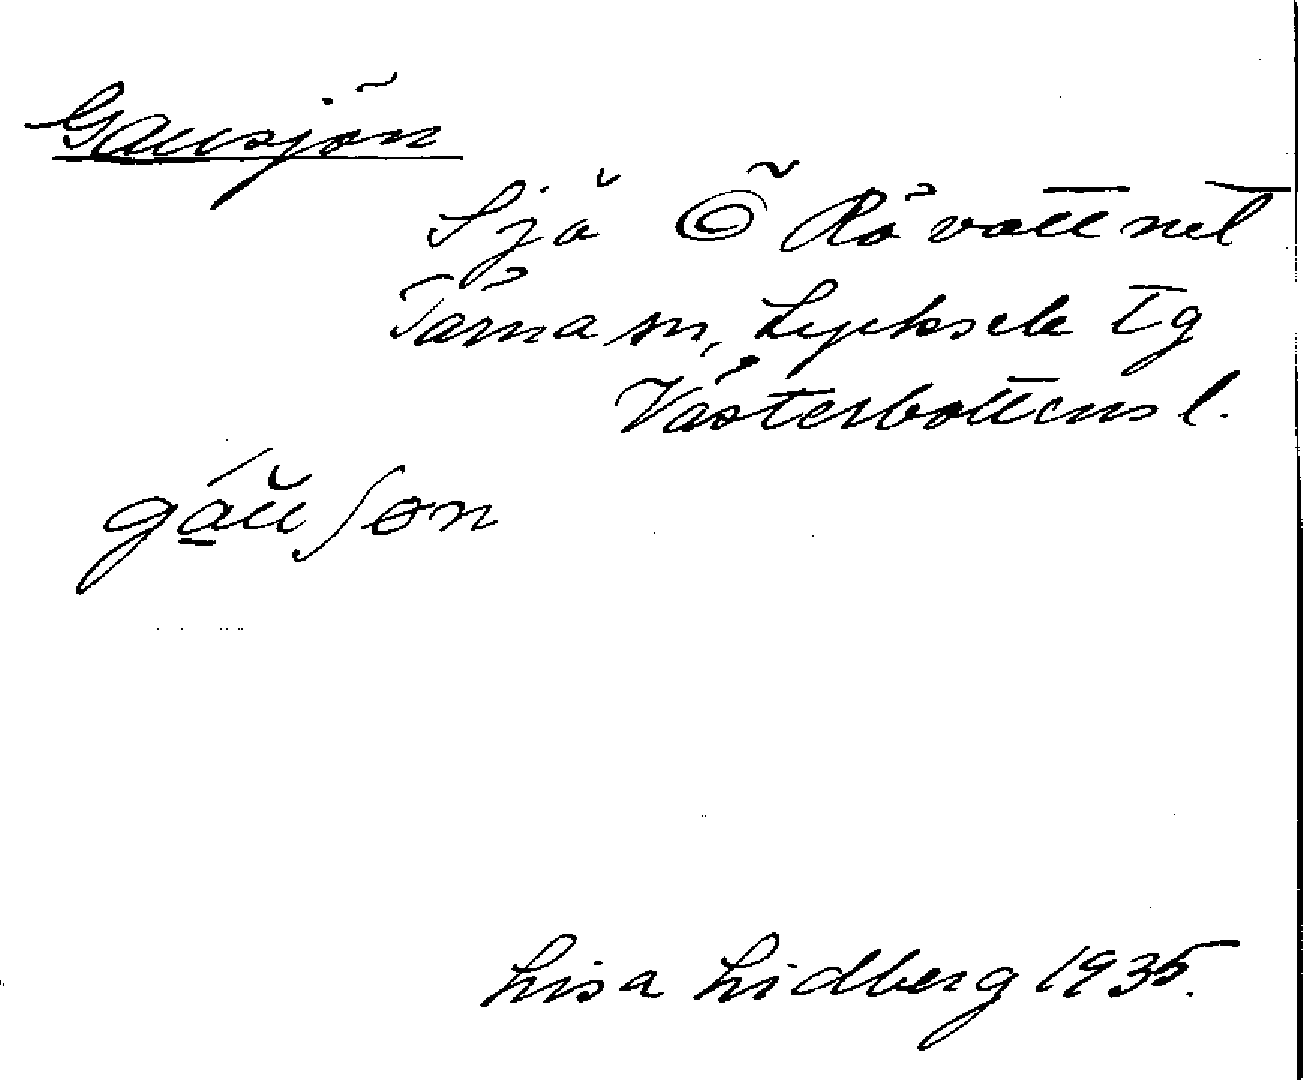 Gausjön
Sjö Ö Råvattnet
Tärna sn, Lycksele tg
Västerbottens l.
gáu̯ʃøn
Lisa Lidberg 1935.